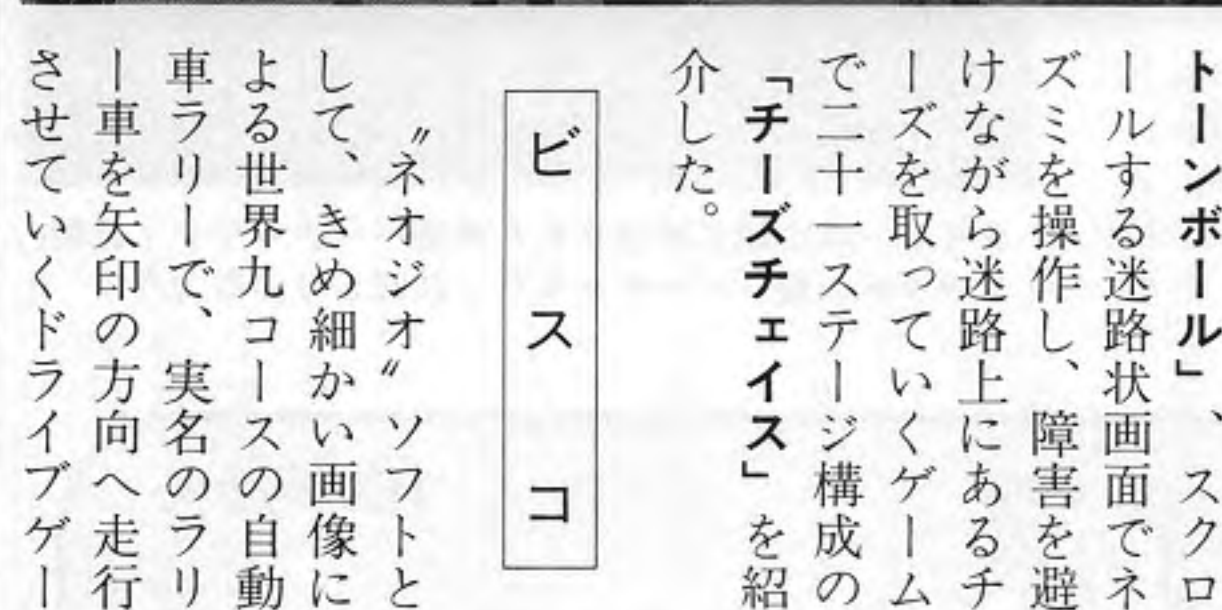 トーンボール」、スクロ
ールする迷路状画面でネ
ズミを操作し、障害を避
けながら迷路上にあるチ
ーズを取っていくゲーム
で二十一ステージ構成の
「チーズチェイス」を紹
介した。
ビスコ
〝ネオジオ〟ソフトと
して、きめ細かい画像に
よる世界九コースの自動
車ラリーで、実名のラリ
ー車を矢印の方向へ走行
させていくドライブゲー